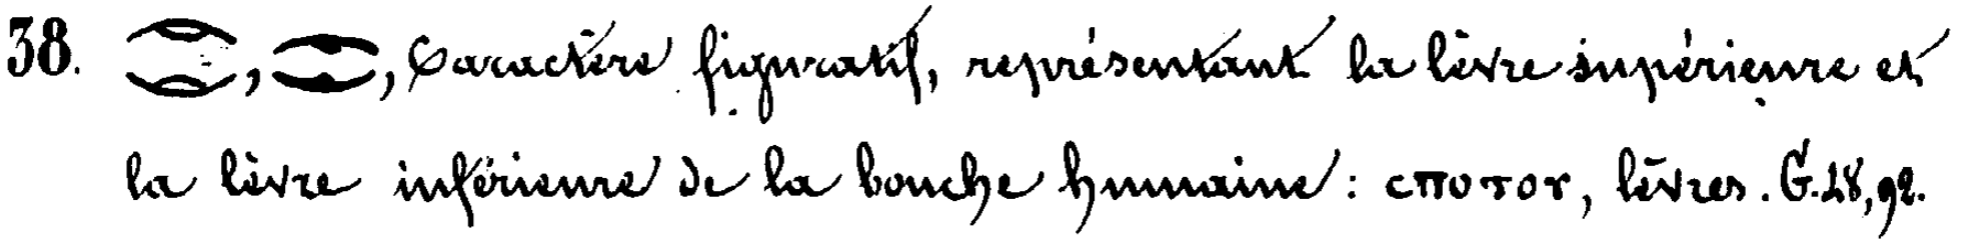 38. , , Caractère figuratif, représentant la lèvre supérieure et
la lèvre inférieure de la bouche humaine : ⲥⲡⲟⲧⲟⲩ, lèvres. G. 48, 92.